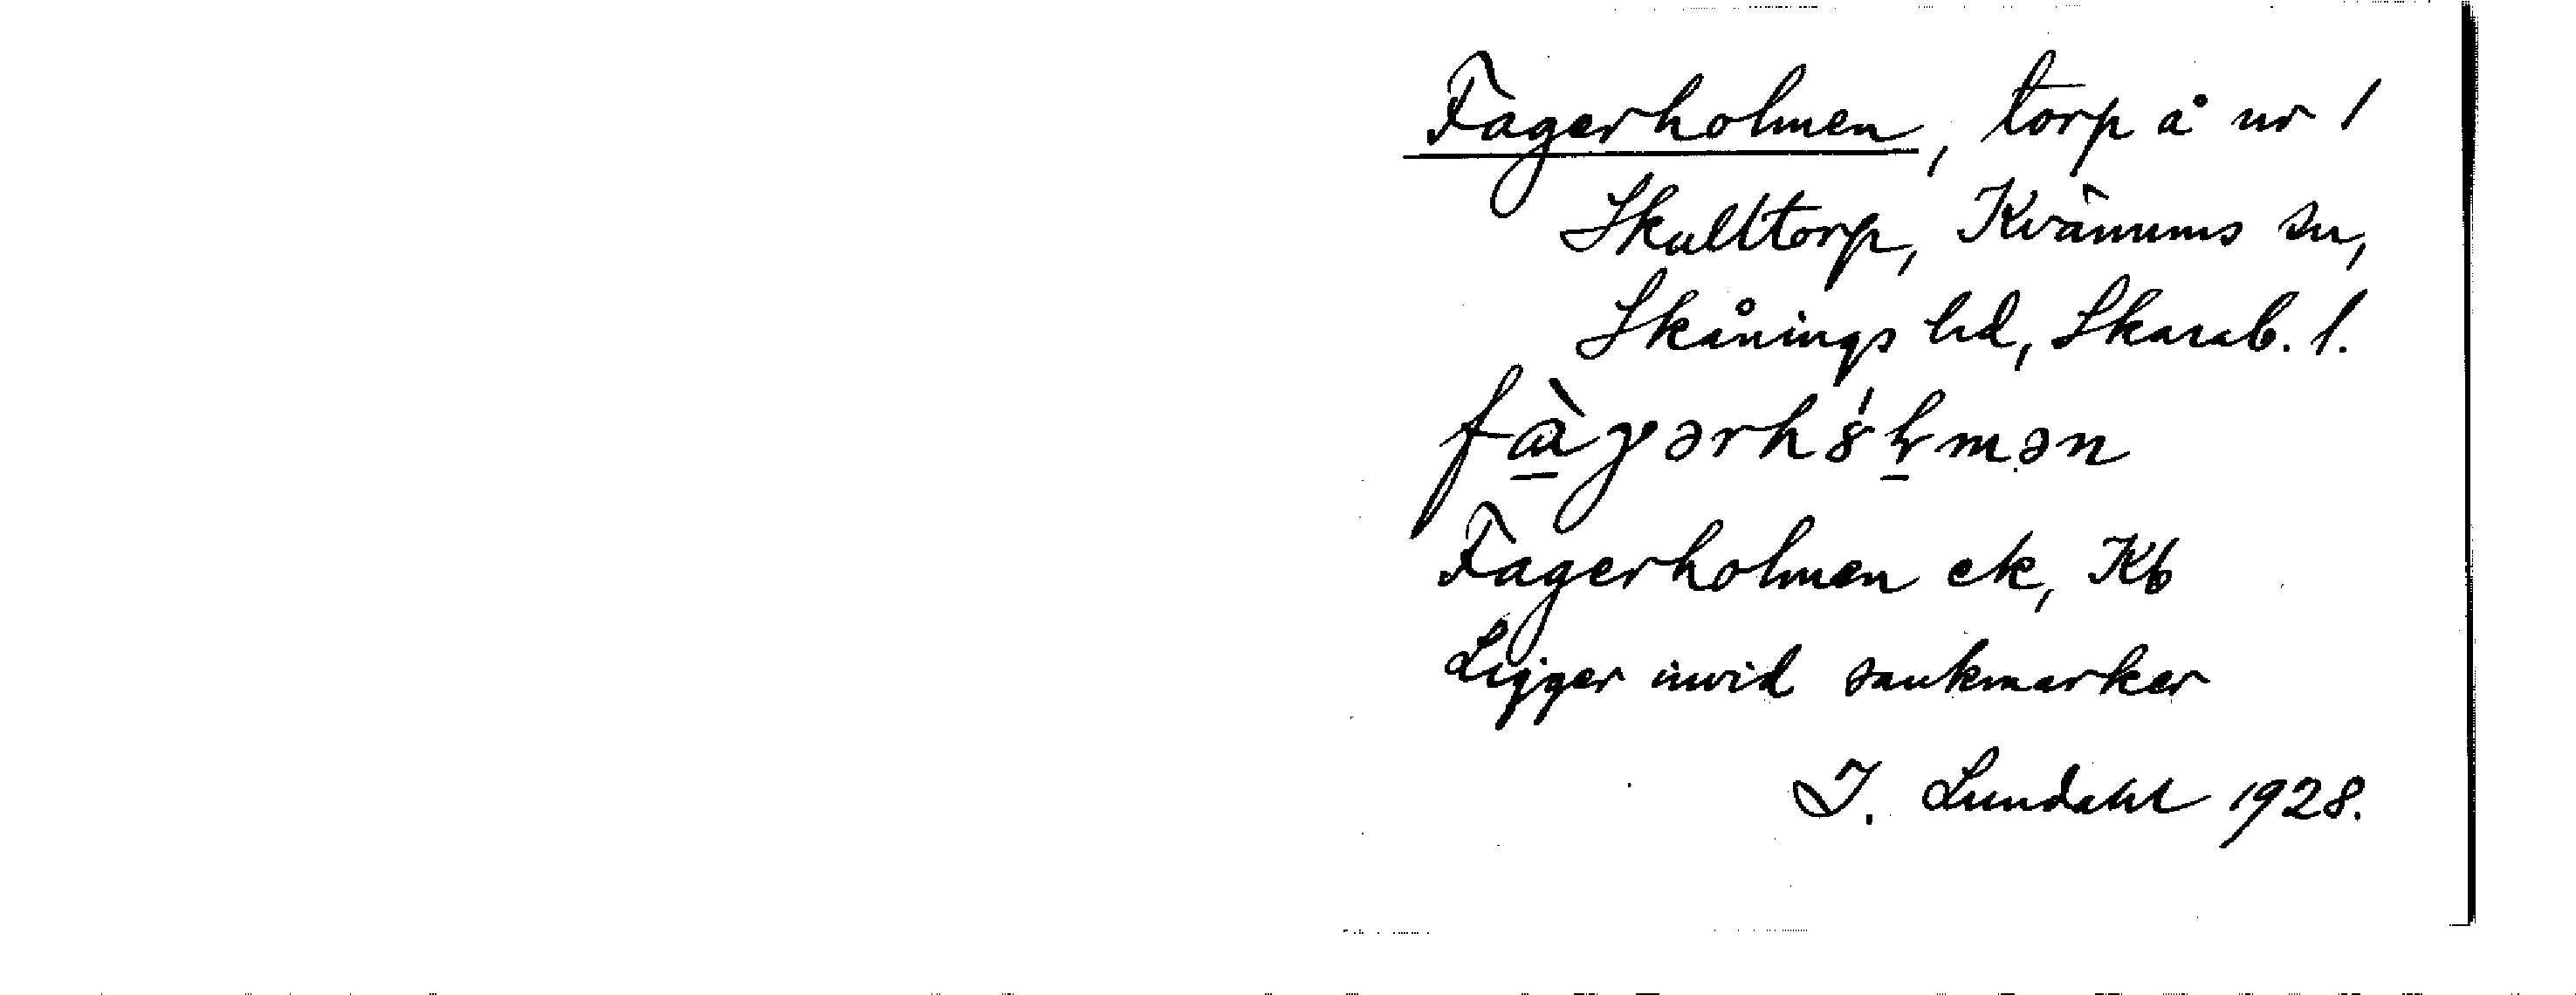 Fagerholmen, torp å nr 1
Skulltorp, Kvänums sn,
Skånings hd, Skarab. l.
Fagerholmen ek, Kb
Ligger invid sankmarker
I. Lundahl 1928.